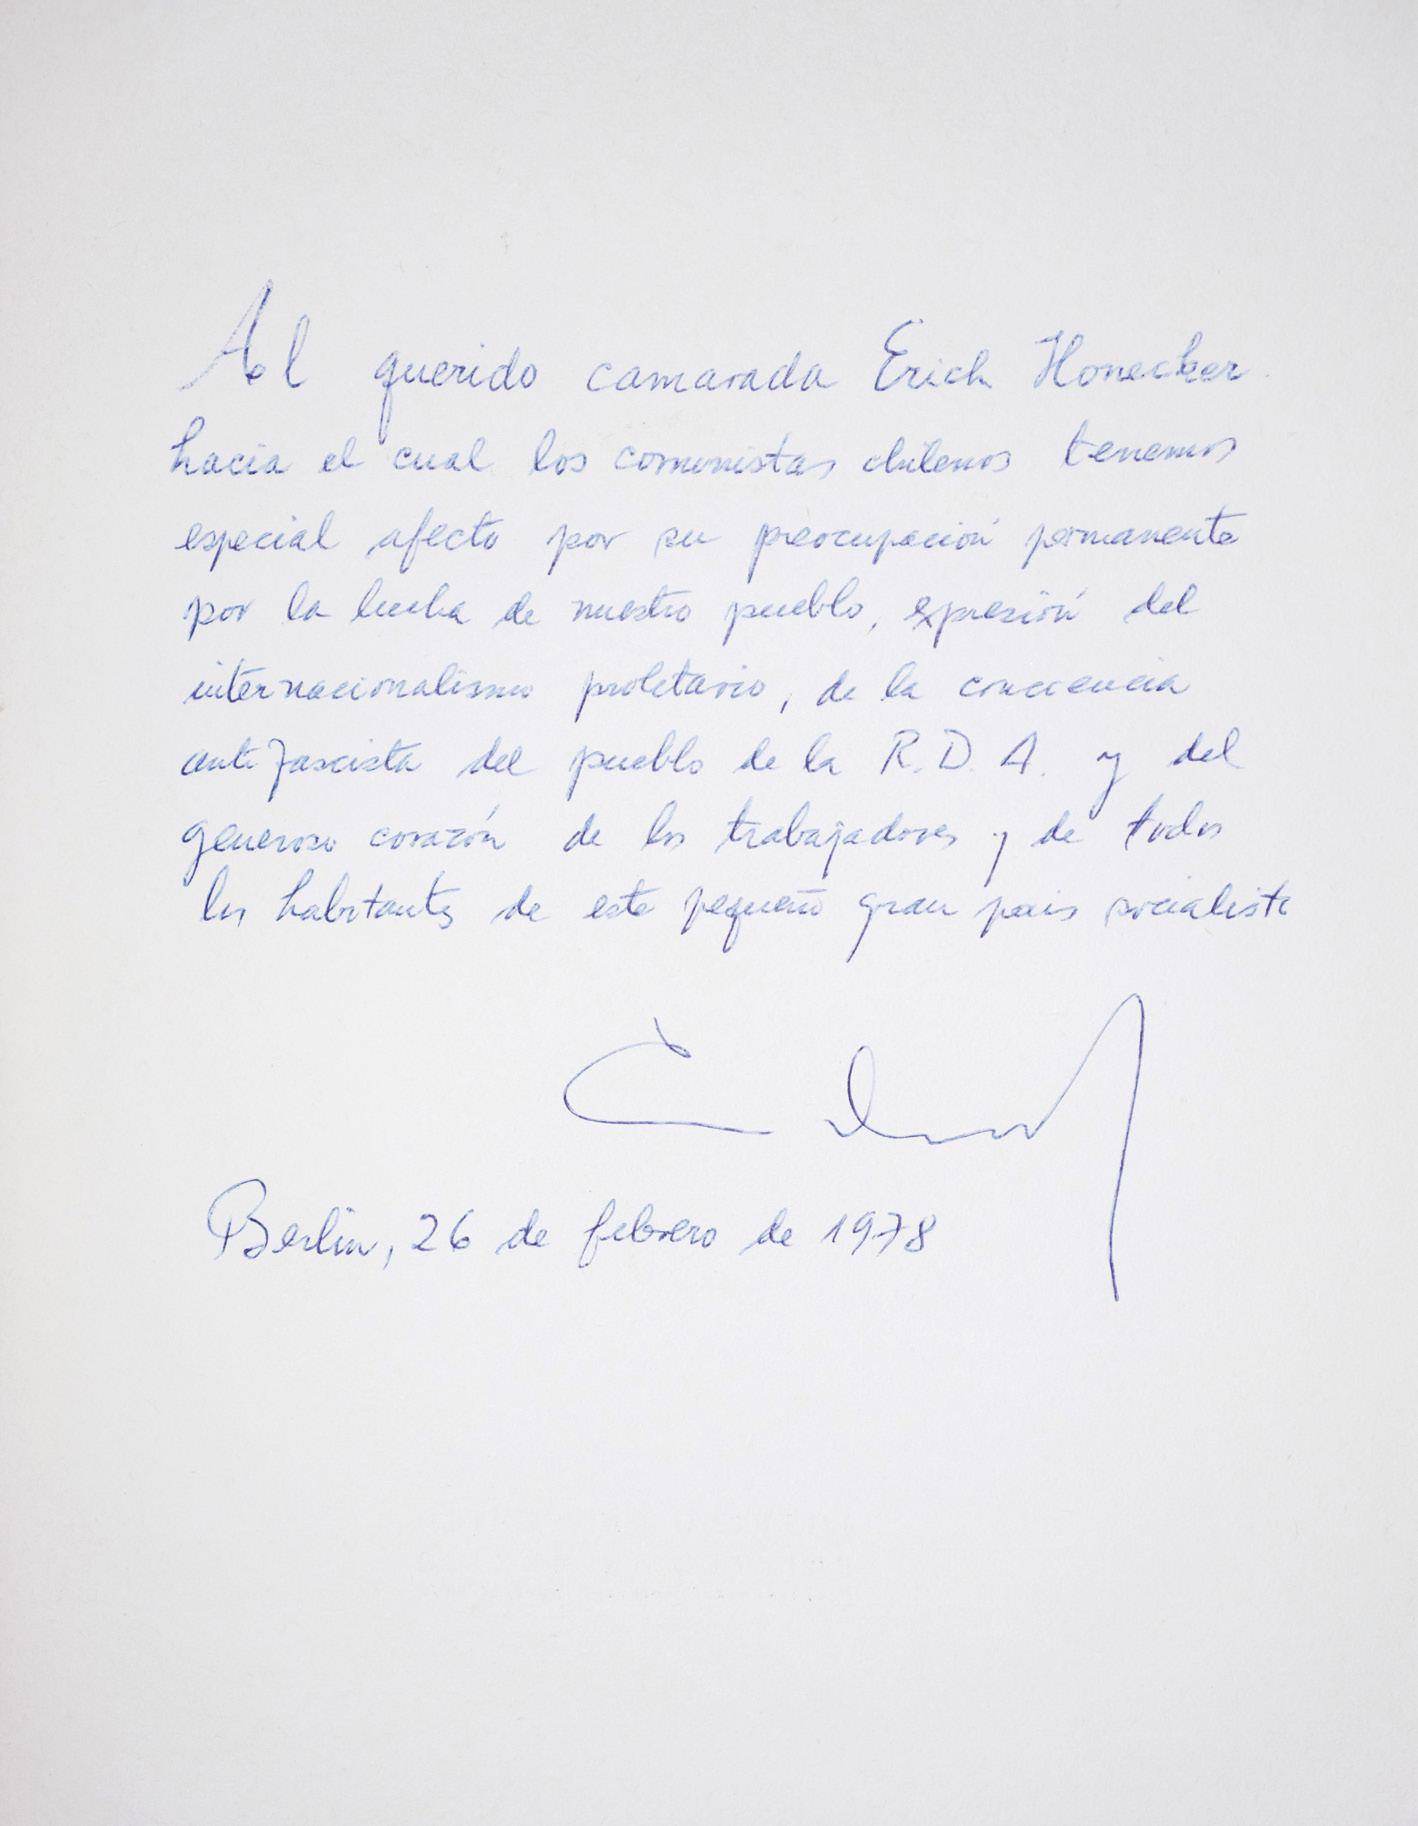 Al querido camarada Erich Honecker
hacia el cual los comunistas chilenos tenemos
especial afecto por su preocupación permanente
por la lucha de nuestro pueblo, expresión del
internacionalismo proletario, de la conciencia
antifascista del pueblo de la R.D.A. y del
generoso corazón de los trabajadores y de todos
los habitantes de este pequeño gran pais socialista
Berlin, 26 de febrero de 1978